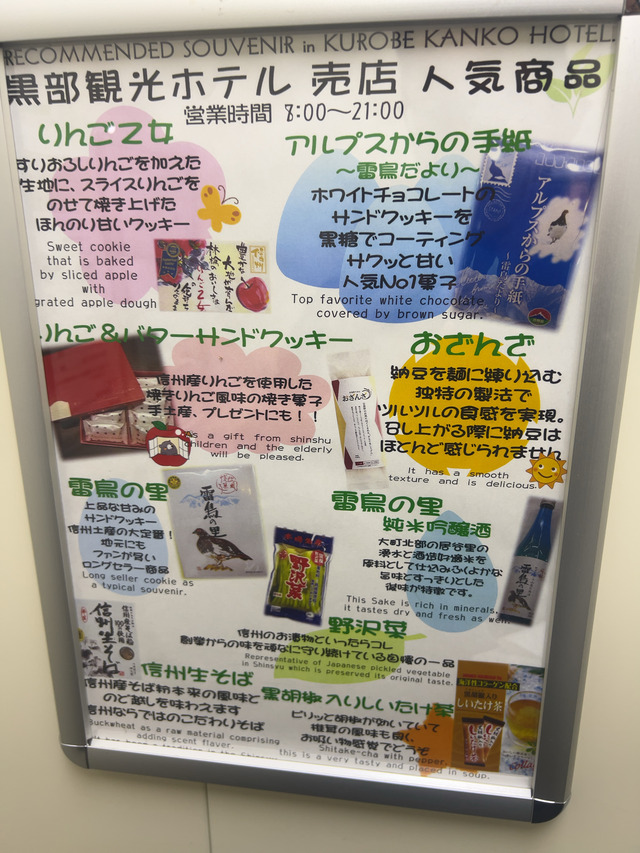 RECOMMENDED SOUVENIR in KUROBE KANKO HOTEL.
黒部観光ホテル 売店 人気商品
営業時間 8:00〜21:00
りんご乙女
すりおろしりんごを加えた
生地に、スライスりんごを
のせて焼き上げた
ほんのり甘いクッキー
Sweet cookie
that is baked
by sliced apple
with
grated apple dough
アルプスからの手紙
〜雷鳥だより〜
ホワイトチョコレートの
サンドクッキーを
黒糖でコーティング
サクッと甘い
人気No1菓子
Top favorite white chocolate
covered by brown sugar.
アルプスからの手紙
〜雷鳥だより〜
りんご&バターサンドクッキー
信州産りんごを使用した
焼きりんご風味の焼き菓子
手土産、プレゼントにも!!
As a gift from shinshu
children and the elderly
will be pleased.
おざんざ
おざんざ
納豆を麺に練り込む
独特の製法で
ツルツルの食感を実現。
召し上がる際に納豆は
ほとんど感じられません
It has a smooth
texture and is delicious.
雷鳥の里
上品な甘みの
サンドクッキー
信州土産の大定番!
地元にも
ファンが多い
ロングセラー商品
Long seller cookie as
a typical souvenir.
雷鳥の里
雷鳥の里
純米吟醸酒
大町北部の居谷里の
湧水と酒造好適米を
原料として仕込みふくよかな
旨味とすっきりとした
後味が特徴です。
This Sake is rich in minerals,
it tastes dry and fresh as well.
雷鳥の里
野沢菜
野沢菜
信州のお漬物といったらコレ
創業からの味を頑なに守り続けている自慢の一品
Representative of Japanese pickled vegetable
in Shinsyu which is preserved its original taste.
信州生そば
信州生そば
信州産そば粉本来の風味と
のど越しを味わえます
信州ならではのこだわりそば
Buckwheat as a raw material comprising
adding scent flavor.
黒胡椒入りしいたけ茶
ピリッと胡椒が効いていて
椎茸の風味も良く、
お吸い物感覚でどうぞ
Shitake-cha with pepper.
this is a very tasty and placed in soup.
海洋性コラーゲン配合
黒胡椒入り
しいたけ茶